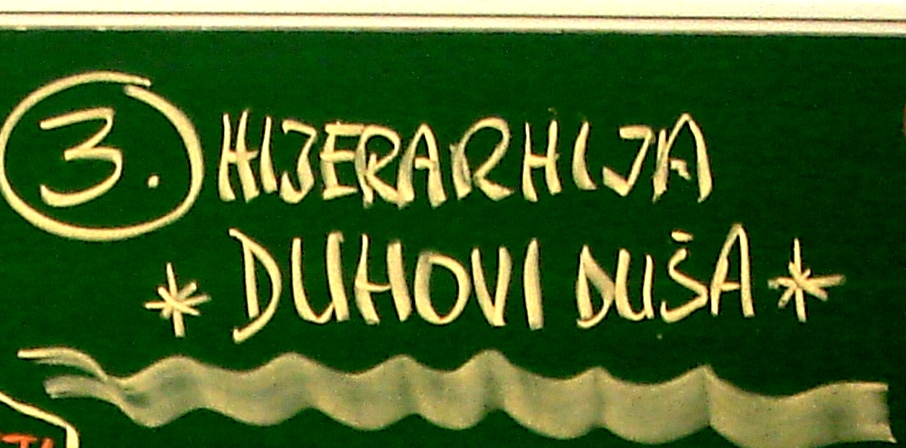 3. HIJERARHIJA
* DUHOVI DUŠA *